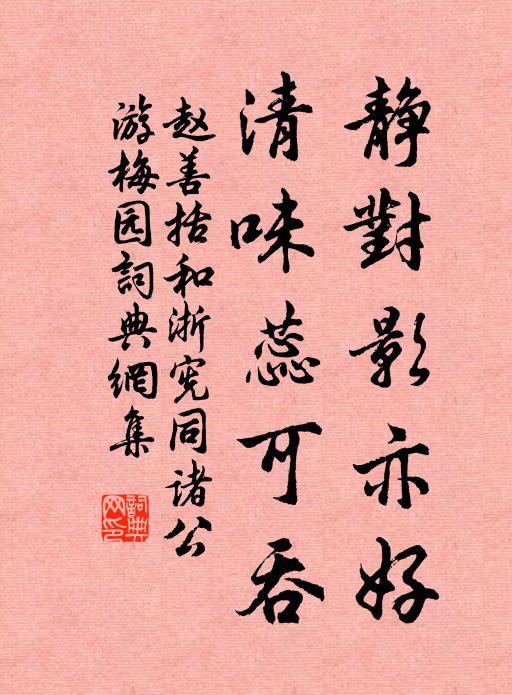 静對影亦好
清味蕊可吞
赵善括和浙宪同诸公
游梅园詞典網集
詞典网印